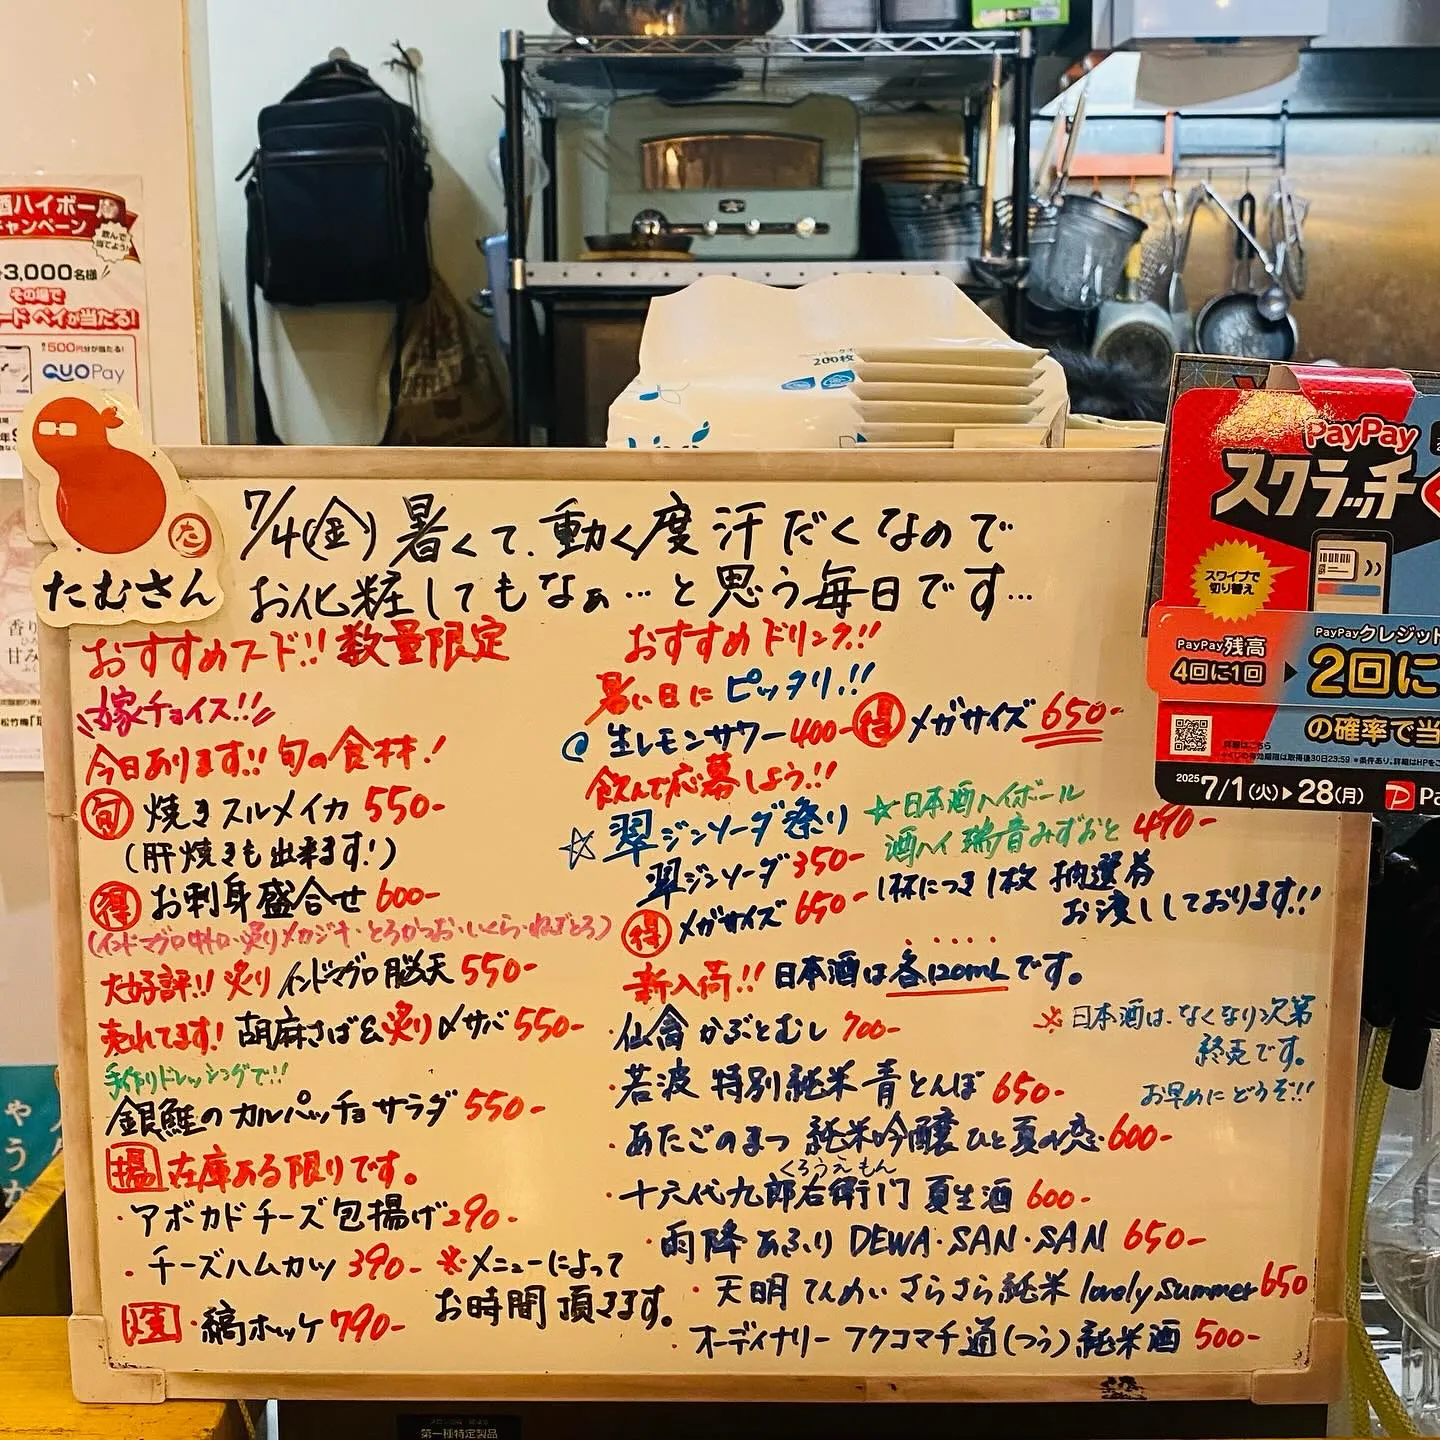 酒ハイボール
キャンペーン
飲んで
当てよう!
3,000名様
その場で
ード ペイが当たる!
500円分が当たる!
QUO Pay
たむさん
た
200枚
7/4(金) 暑くて、動く度汗だくなので
お化粧してもなぁ…と思う毎日です…
おすすめフード!! 数量限定
嫁チョイス!!
今日あります!! 旬の食材!
旬 焼きスルメイカ 550-
(肝焼きも出来ます!)
得 お刺身盛合せ 600-
(インドマグロ中トロ・炙りメカジキ・とろかつお・いくら・ねぎとろ)
大好評!! 炙りインドマグロ脳天 550-
売れてます! 胡麻さば&炙り〆サバ 550-
手作りドレッシングで!!
銀鮭のカルパッチョサラダ 550-
揚 在庫ある限りです。
・アボカドチーズ包揚げ 290-
・チーズハムカツ 390-
※メニューによって
お時間頂きます。
・縞ホッケ 790-
おすすめドリンク!!
暑い日にピッタリ!!
生レモンサワー 400- 得 メガサイズ 650-
飲んで応募しよう!!
☆翠ジンソーダ祭り
翠ジンソーダ 350-
得 メガサイズ 650-
☆日本酒ハイボール
酒ハイ 瑞音みずおと 490-
1杯につき1枚 抽選券
お渡ししております!!
新入荷!! 日本酒は各120mLです。
・仙禽 かぶとむし 700-
・若波 特別純米 青とんぼ 650-
・あたごのまつ 純米吟醸 ひと夏の恋 600-
くろうえもん
・十六代九郎右衛門 夏生酒 600-
・雨降 あふり DEWA・SAN・SAN 650-
・天明 てんめい さらさら純米 lovely summer 650
・オーディナリー フクコマチ 通(つう) 純米酒 500-
※日本酒は、なくなり次第
終売です。
お早めにどうぞ!!
PayPay
スクラッチ
スワイプで
切り替え
PayPay残高
4回に1回
PayPayクレジット
2回に
の確率で当
詳細はこちら
2025 7/1(火)▶28(月)
やうか
第一種特定製品